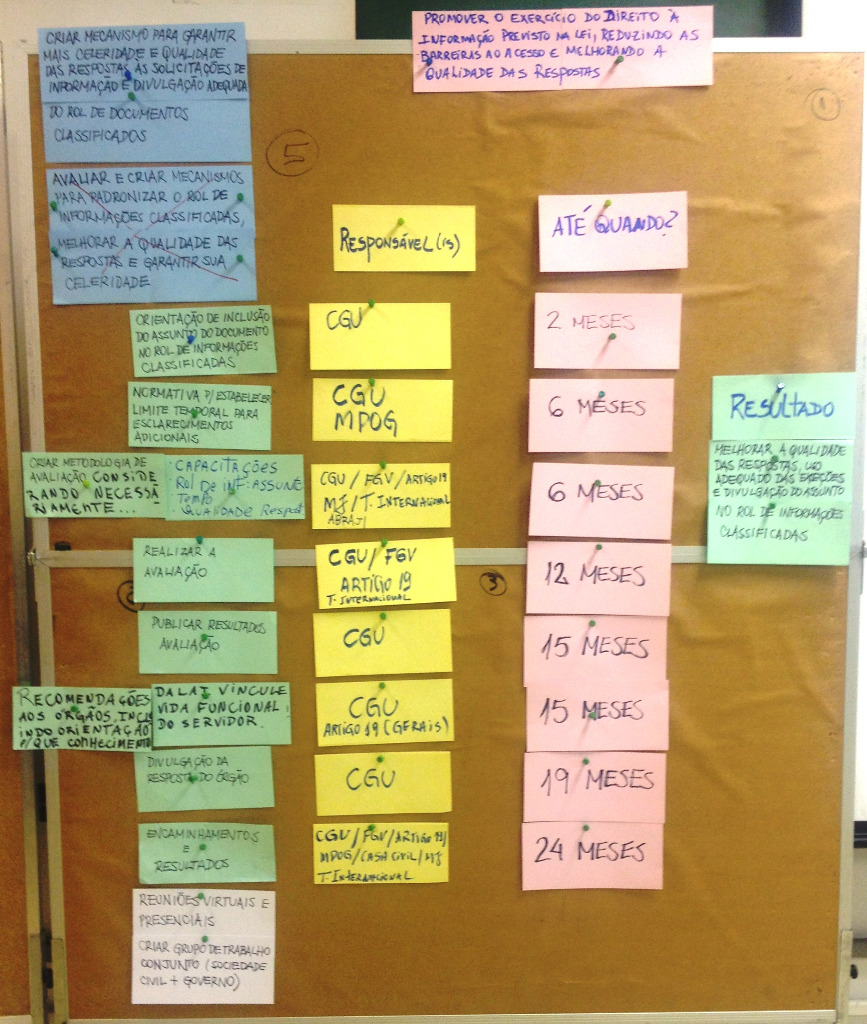 CRIAR MECANISMO PARA GARANTIR
MAIS CELERIDADE E QUALIDADE
DAS RESPOSTAS ÀS SOLICITAÇÕES DE
INFORMAÇÃO E DIVULGAÇÃO ADEQUADA
DO ROL DE DOCUMENTOS
CLASSIFICADOS
PROMOVER O EXERCÍCIO DO DIREITO À
INFORMAÇÃO PREVISTO NA LEI, REDUZINDO AS
BARREIRAS AO ACESSO E MELHORANDO A
QUALIDADE DAS RESPOSTAS
1
5
AVALIAR E CRIAR MECANISMOS
PARA PADRONIZAR O ROL DE
INFORMAÇÕES CLASSIFICADAS,
MELHORAR A QUALIDADE DAS
RESPOSTAS E GARANTIR SUA
CELERIDADE
RESPONSÁVEL(IS)
ATÉ QUANDO?
ORIENTAÇÃO DE INCLUSÃO
DO ASSUNTO DO DOCUMENTO
NO ROL DE INFORMAÇÕES
CLASSIFICADAS
CGU
2 MESES
NORMATIVA P/ ESTABELECER
LIMITE TEMPORAL PARA
ESCLARECIMENTOS
ADICIONAIS
CGU
MPOG
6 MESES
CRIAR METODOLOGIA DE
AVALIAÇÃO CONSIDE
RANDO NECESSA
RIAMENTE...
• CAPACITAÇÕES
ROL DE INF: ASSUNT
TEMPO
QUALIDADE RESPOST
CGU / FGV / ARTIGO 19
MJ / T. INTERNACIONAL
ABRAJI
6 MESES
REALIZAR A
AVALIAÇÃO
CGU / FGV
ARTIGO 19
T. INTERNACIONAL
12 MESES
2
3
PUBLICAR RESULTADOS
AVALIAÇÃO
CGU
15 MESES
RECOMENDAÇÕES
AOS ORGÃOS, INCL
INDO ORIENTAÇÃO
P/ QUE CONHECIMENTO
DA LAI VINCULE
VIDA FUNCIONAL
DO SERVIDOR.
CGU
ARTIGO 19 (GERAIS)
15 MESES
DIVULGAÇÃO DA
RESPOSTA DO ÓRGÃO
CGU
19 MESES
ENCAMINHAMENTOS
E
RESULTADOS
CGU / FGV / ARTIGO 19 /
MPOG / CASA CIVIL / MJ
T. INTERNACIONAL
24 MESES
REUNIÕES VIRTUAIS E
PRESENCIAIS
CRIAR GRUPO DE TRABALHO
CONJUNTO (SOCIEDADE
CIVIL + GOVERNO)
RESULTADO
MELHORAR A QUALIDADE
DAS RESPOSTAS, USO
ADEQUADO DAS EXCEÇÕES
E DIVULGAÇÃO DO ASSUNTO
NO ROL DE INFORMAÇÕES
CLASSIFICADAS